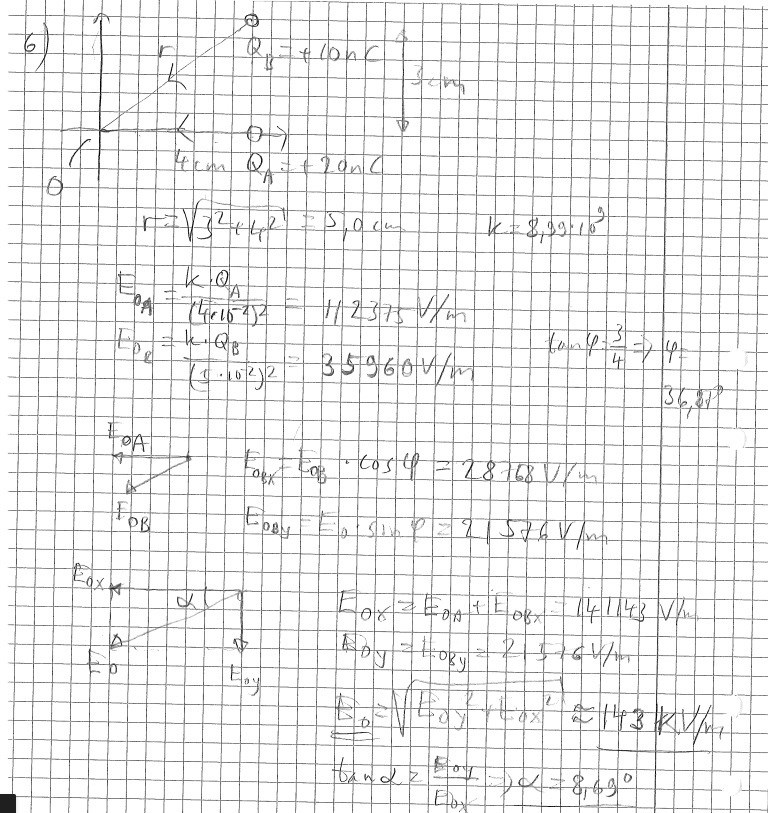 6)
r
Q_B = +10nC
3cm
4cm Q_A = +20nC
O
r = √(3²+4²) = 5,0 cm
k = 8,99·10⁹
E_0A = k·Q_A / (4·10⁻²)² = 112375 V/m
E_0B = k·Q_B / (5·10⁻²)² = 35960 V/m
tan φ = 3/4 => φ =
36,87°
E_0A
E_0B
E_0Bx = E_0B · cos φ = 28768 V/m
E_0By = E_0 · sin φ = 21576 V/m
E_0x
α
E_0
E_0y
E_0x = E_0A + E_0Bx = 141143 V/m
E_0y = E_0By = 21576 V/m
E_0 = √(E_0y² + E_0x²) ≈ 143 kV/m
tan α = E_0y / E_0x => α = 8,69°